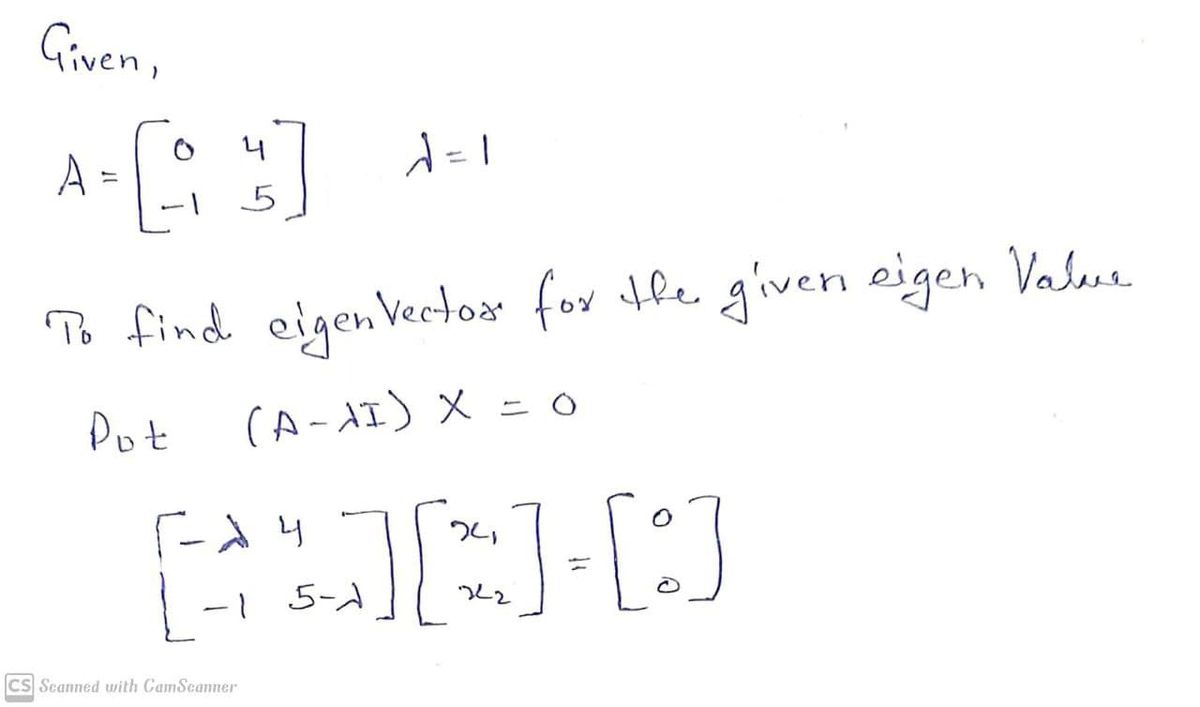 Given,
A = [ 0 4 ; -1 5 ] λ = 1
To find eigen Vector for the given eigen Value
Put (A - λI) X = 0
[ -λ 4 ; -1 5-λ ] [ x₁ ; x₂ ] = [ 0 ; 0 ]
CS Scanned with CamScanner